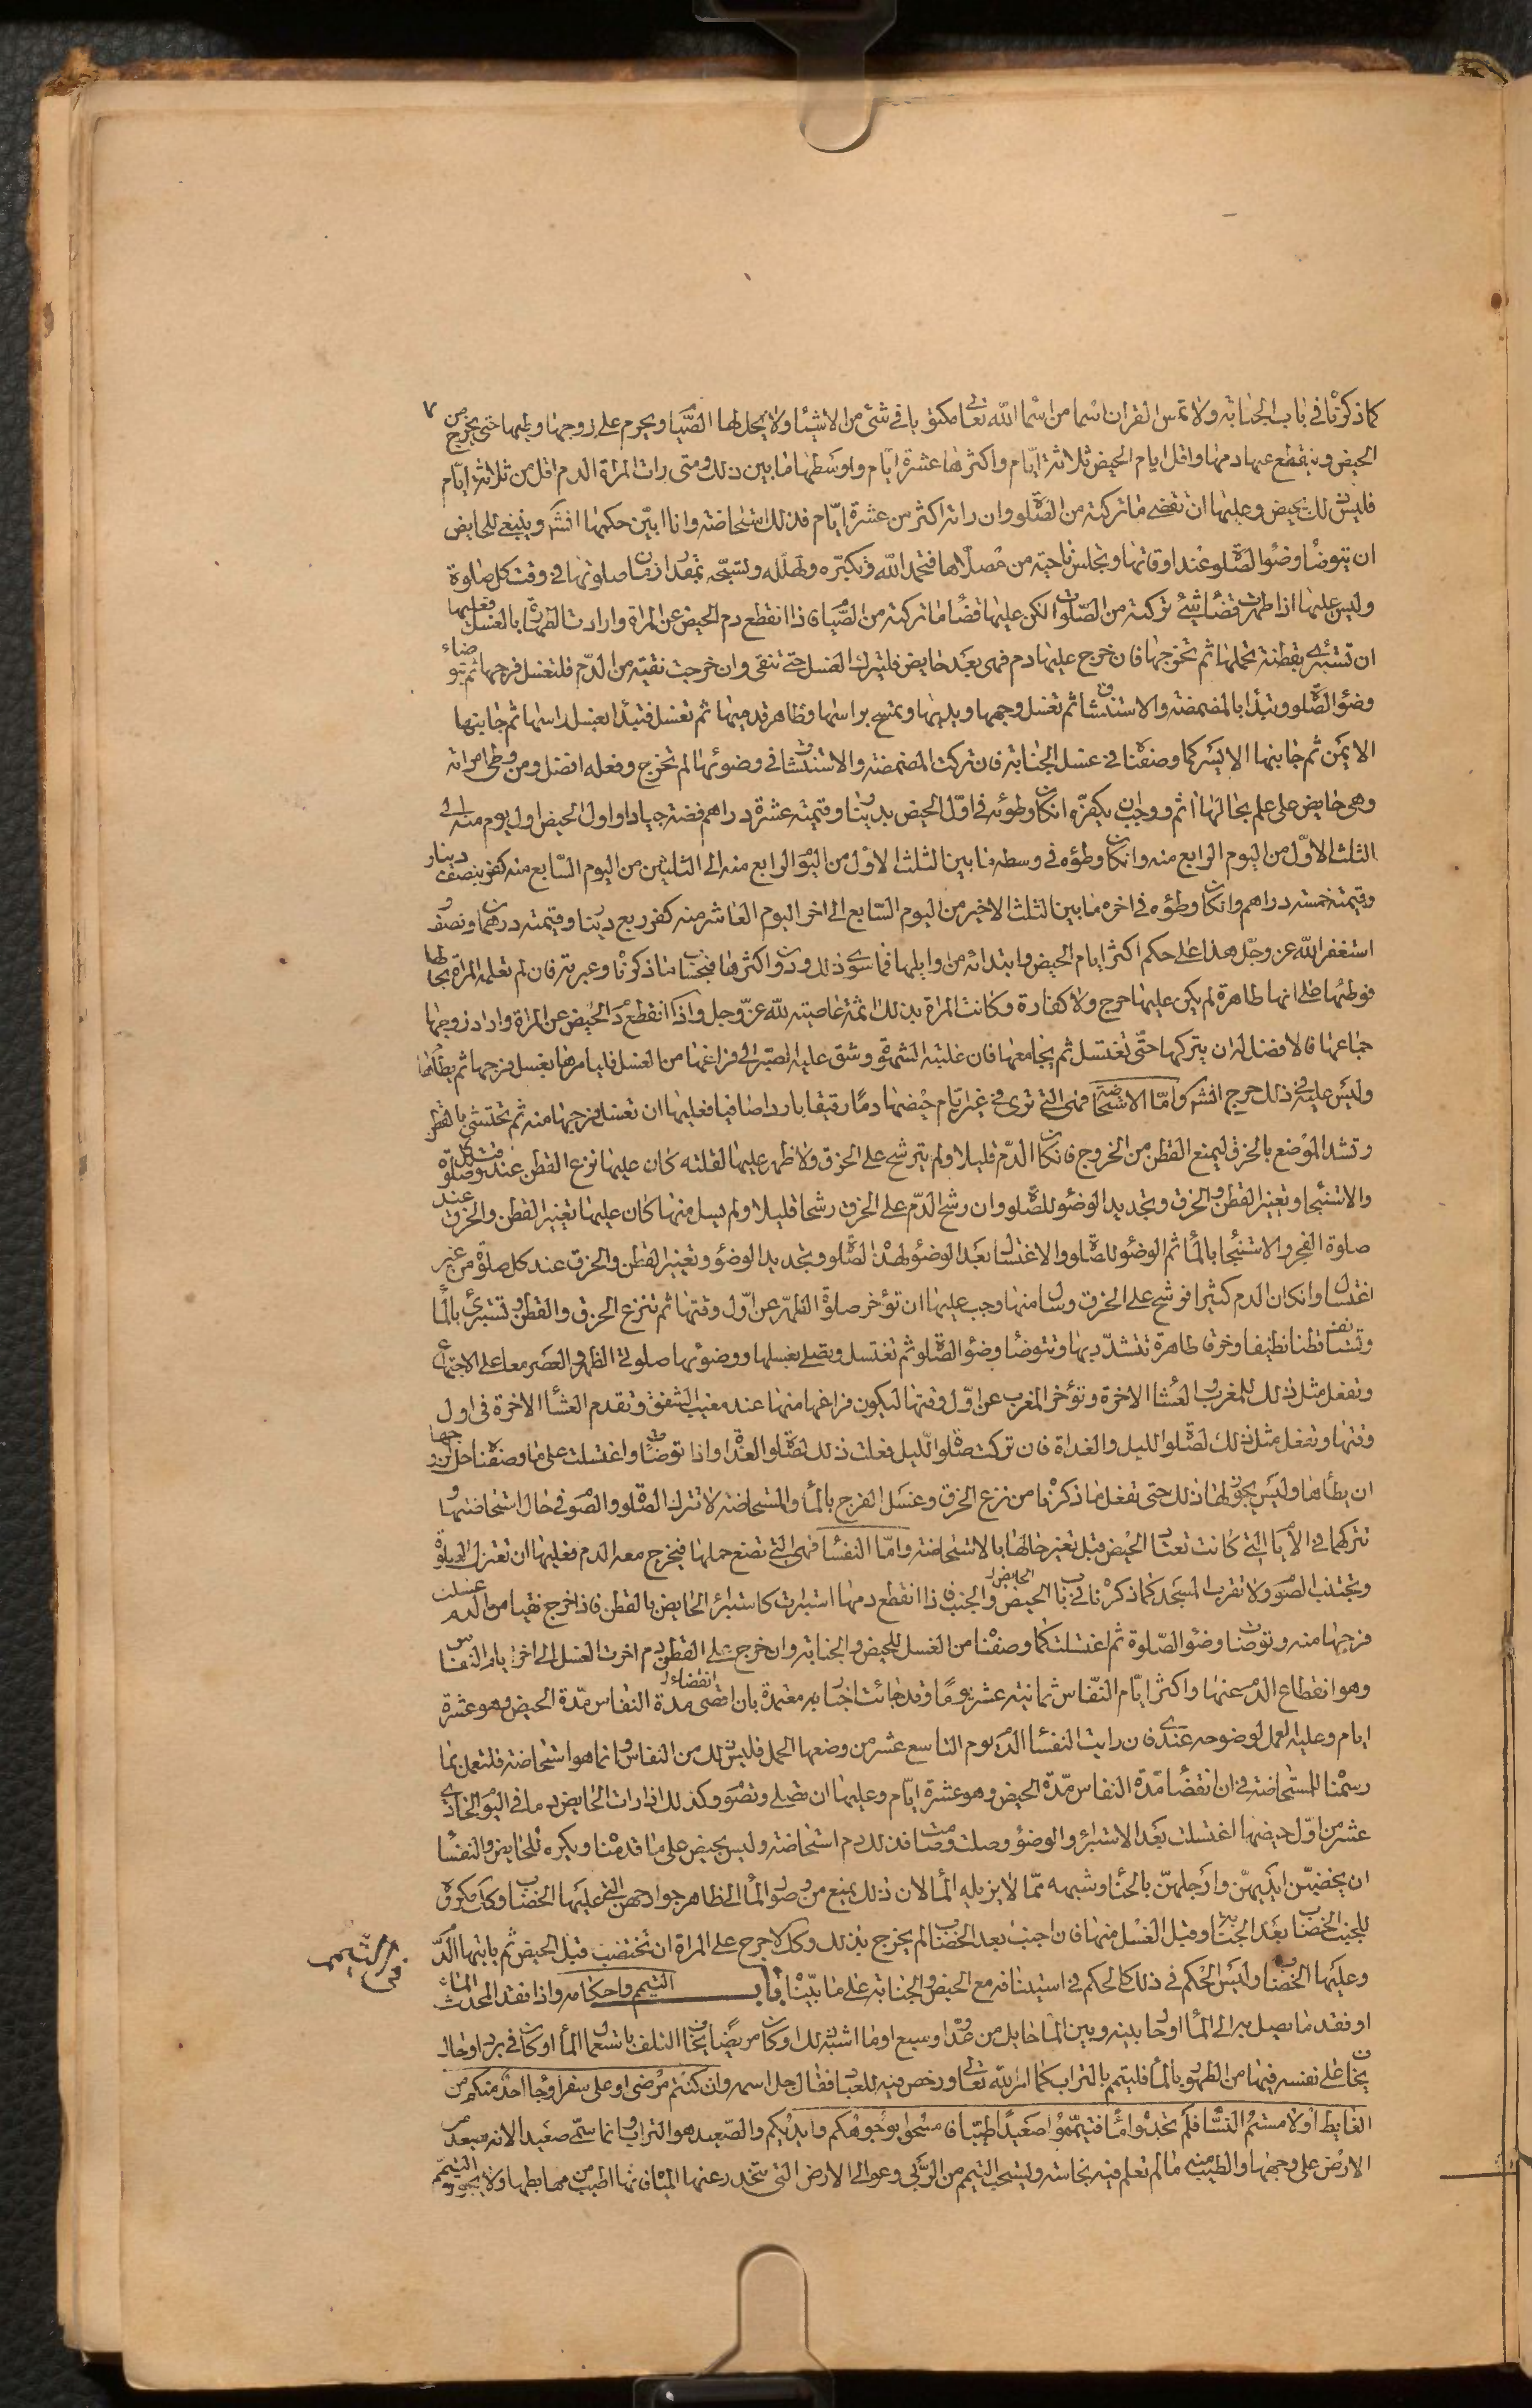 كما ذكرناه في باب الجنابة ولا تمس القران ولا اسما من اسماء الله تعالى مكتوبا في شئ من الاشياء ولا يحل لها الصيام ويحرم على زوجها وطيها حتى يخرج من
الحيض وينقطع عنها دمها واقل ايام الحيض ثلاثة ايام واكثرها عشرة ايام واوسطها ما بين ذلك ومتى رات المراة الدم اقل من ثلاثة ايام
فليس ذلك بحيض وعليها ان تقضي ما تركته من الصلوة وان راته اكثر من عشرة ايام فذلك استحاضة وانا ابين حكمها انشاء وينبغي للحايض
ان تتوضا وضوء الصلوة عند اوقاتها وتجلس ناحية من مصلاها فتحمد الله وتكبره وتهلله وتسبحه بمقدار زمان صلوتها في وقت كل صلوة
وليس عليها اذا طهرت قضاء شئ تركته من الصلوات لكن عليها قضاء ما تركته من الصيام فاذا انقطع دم الحيض عن المراة وارادت الطهارة بالغسل فعليها
ان تستبرئ بقطنة تحملها ثم تخرجها فان خرج عليها دم فهي بعد حايض فلتترك الغسل حتى تنقى وان خرجت نقية من الدم فلتغسل فرجها ثم تتوضاء
وضوء الصلوة وتبدا بالمضمضة والاستنشاق ثم تغسل وجهها ويديها وتمسح براسها وظاهر قدميها ثم تغسل فتبدا بغسل راسها ثم جانبها
الايمن ثم جانبها الايسر كما وصفنا في غسل الجنابة فان تركت المضمضة والاستنشاق في وضوئها لم تخرج وفعله افضل ومن وطى امراته
وهي حايض على علم بحالها اثم ووجب ان يكفر انكان وطؤه في اول الحيض بدينار وقيمته عشرة دراهم فضة جيادا واول الحيض اول يوم منه الى
الثلث الاول من اليوم الرابع منه وانكان وطؤه في وسطه ما بين الثلث الاول من اليوم الرابع منه الى الثلثين من اليوم السابع منه كفر بنصف دينار
وقيمته خمسة دراهم وانكان وطؤه في اخره ما بين الثلث الاخير من اليوم السابع الى اخر اليوم العاشر منه كفر بربع دينار وقيمته درهمان ونصف و
استغفر الله عز وجل هذا على حكم اكثر ايام الحيض وابتدائه من اوايلها فما سوى ذلك ودون اكثرها فبحساب ما ذكرناه وعبرته فان لم تعلمه المراة بحالها
فوطئها على انها طاهرة لم يكن عليها حرج ولا كفارة وكانت المراة بذلك اثمة عاصية لله عز وجل واذا انقطع دم الحيض عن المراة واراد زوجها
جماعها فالافضل له ان يتركها حتى تغتسل ثم يجامعها فان غلبته الشهوة وشق عليه الصبر الى فراغها من الغسل فليامرها بغسل فرجها ثم يطأها
وليس عليه في ذلك حرج انشاء واما الاستحاضة فهي التي ترى في غير ايام حيضها دما رقيقا باردا صافيا فعليها ان تغسل فرجها منه ثم تحتشي بالقطن
وتشد الموضع بالخرق ليمنع القطن من الخروج فانكان الدم قليلا ولم يترشح على الخرق ولا ظهر عليها لقلته كان عليها نزع القطن عند وقت كل صلوة
والاستنجاء وتغيير القطن والخرق وتجديد الوضوء للصلوة وان رشح الدم على الخرق رشحا قليلا ولم يسل منها كان عليها تغيير القطن والخرق عند
صلوة الفجر والاستنجاء بالماء ثم الوضوء للصلوة والاغتسال بعد الوضوء لهذه الصلوة وتجديد الوضوء وتغيير القطن والخرق عند كل صلوة من غير
اغتسال وانكان الدم كثيرا فرشح على الخرق وسال منها وجب عليها ان تؤخر صلوة الظهر عن اول وقتها ثم تنزع الخرق والقطن وتستبرئ بالماء
وتستانف قطنا نظيفا وخرقا طاهرة تتشدد بها وتتوضا وضوء الصلوة ثم تغتسل وتصلي بغسلها ووضوئها صلوتي الظهر والعصر معا على الاجتماع
وتفعل مثل ذلك للمغرب والعشاء الاخرة وتؤخر المغرب عن اول وقتها ليكون فراغها منها عند مغيب الشفق وتقدم العشاء الاخرة في اول
وقتها وتفعل مثل ذلك لصلوة الليل والغداة فان تركت صلوة الليل فعلت ذلك لصلوة الغداة واذا توضات واغتسلت على ما وصفناه حل لزوجها
ان يطأها وليس يجوز لها ذلك حتى تفعل ما ذكرناه من نزع الخرق وغسل الفرج بالماء والمستحاضة لا تترك الصلوة والصوم في حال استحاضتها و
تتركهما في الايام التي كانت تعتاد الحيض قبل تغير حالها بالاستحاضة واما النفساء فهي التي تضع حملها فيخرج معه الدم فعليها ان تعتزل الصلوة
وتجتنب الصوم ولا تقرب المسجد كما ذكرناه في باب الحيض الحايض والجنب فاذا انقطع دمها استبرات كاستبراء الحايض بالقطن فاذا خرج نقيا من الدم غسلت
فرجها منه وتوضات وضوء الصلوة ثم اغتسلت كما وصفنا من الغسل للحيض والجنابة وان خرج على القطن دم اخرت الغسل الى اخر ايام النفاس
وهو انقطاع الدم عنها واكثر ايام النفاس ثمانية عشر يوما وقد جائت اخبار معتمدة بان اقصى انقضاء مدة النفاس مدة الحيض وهو عشرة
ايام وعليه العمل لوضوحه عندي فان رايت النفساء الدم يوم التاسع عشر من وضعها الحمل فليس ذلك من النفاس وانما هو استحاضة فلتعمل بما
رسمناه للمستحاضة في ان انقضاء مدة النفاس مدة الحيض وهو عشرة ايام وعليها ان تصلي وتصوم وكذلك اذا رات الحايض دما في اليوم الحادي
عشر من اول حيضها اغتسلت بعد الاستبراء والوضوء وصلت وصامت فذلك دم استحاضة وليس بحيض على ما قدمناه ويكره للحايض والنفساء
ان يخضبن ايديهن وارجلهن بالحناء وشبهه مما لا يزيله الماء لان ذلك يمنع من وصول الماء الى ظاهر جوارحهن التي عليها الخضاب وكذلك يكره
للجنب الخضاب بعد الجنابة وقبل الغسل منها فان اجنب بعد الخضاب لم يحرج بذلك وكذلك لا حرج على المراة ان تختضب قبل الحيض ثم ياتيها الدم
وعليها الخضاب وليس الحكم في ذلك كالحكم في استينافه مع الحيض والجنابة على ما بيناه باب التيمم واحكامه واذا فقد المحدث الماء
في التيمم
او فقد ما يصل به الى الماء او حال بينه وبين الماء حايل من عدو او سبع او ما اشبه ذلك او كان مريضا يخاف التلف باستعمال الماء او كان في برد او حال
يخاف على نفسه فيها من الطهور بالماء فليتيمم بالتراب كما امر الله تعالى ورخص فيه للعباد فقال جل اسمه وان كنتم مرضى او على سفر او جاء احد منكم من
الغايط او لامستم النساء فلم تجدوا ماء فتيمموا صعيدا طيبا فامسحوا بوجوهكم وايديكم والصعيد هو التراب وانما سمى صعيدا لانه يصعد من
الارض على وجهها والطيب منه ما لم تعلم فيه نجاسة ويستحب التيمم من الربى وعوالي الارض التي تتحدر عنها المياه فانها اطيب من مهابطها ولا يجوز التيمم